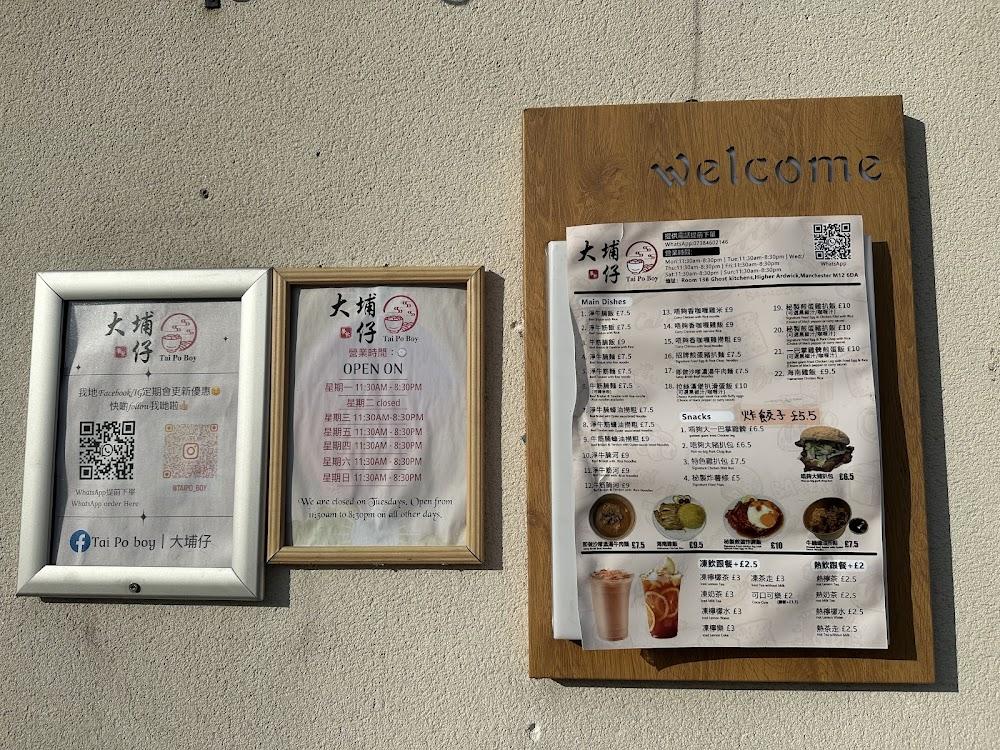 大埔仔
Tai Po Boy
我地Facebook/IG定期會更新優惠😊
快啲follow我地啦👍
@TAIPO_BOY
WhatsApp提前下單
WhatsApp order Here
Tai Po boy | 大埔仔
大埔仔
Tai Po Boy
營業時間:
OPEN ON
星期一 11:30AM - 8:30PM
星期二 closed
星期三 11:30AM-8:30PM
星期五 11:30AM-8:30PM
星期四 11:30AM-8:30PM
星期六 11:30AM - 8:30PM
星期日 11:30AM - 8:30PM
We are closed on Tuesdays, Open from
11:30am to 8:30pm on all other days.
welcome
大埔仔
Tai Po Boy
提供電話提前下單
WhatsApp:07384602146
營業時間:
Mon:11:30am-8:30pm | Tue:11:30am-8:30pm | Wed:/
Thu:11:30am-8:30pm | Fri:11:30am-8:30pm
Sat:11:30am-8:30pm | Sun:11:30am-8:30pm
地址: Room 158 Ghost kitchens,Higher Ardwick,Manchester M12 6DA
WhatsApp
Main Dishes
1. 淨牛腩飯 £7.5
2. 淨牛筋飯 £7.5
3. 牛筋腩飯 £9
4. 淨牛腩麵 £7.5
牛筋腩麵 £7.5
7. 淨牛腩蠔油撈麵 £7.5
8. 淨牛筋蠔油撈麵 £7.5
9. 牛筋腩蠔油撈麵 £9
10. 淨牛腩河 £9
11. 淨牛筋河 £9
12. 牛筋腩河 £9
13. 唔夠香咖喱雞米 £9
14. 唔夠香咖喱雞飯 £9
15. 唔夠香咖喱雞撈麵 £9
16. 招牌煎蛋豬扒麵 £7.5
17. 即做沙嗲濃湯牛肉麵 £7.5
18. 拉絲漢堡扒滑蛋飯 £10
19. 秘製煎蛋豬扒飯 £10
(可選黑椒汁/咖喱汁)
20. 秘製煎蛋雞扒飯 £10
(可選黑椒汁/咖喱汁)
21. 一巴掌雞髀煎蛋飯 £10
(可選黑椒汁/咖喱汁)
22. 海南雞飯 £9.5
Snacks
炸餃子 £5.5
1. 唔夠大一巴掌雞髀 £6.5
2. 唔夠大豬扒包 £6.5
3. 特色雞扒包 £7.5
4. 秘製炸薯條 £5
唔夠大豬扒包 £6.5
即做沙嗲濃湯牛肉麵 £7.5
海南雞飯 £9.5
£10
£7.5
凍飲跟餐+£2.5
凍檸檬茶 £3
凍奶茶 £3
凍檸檬水 £3
凍檸樂 £3
凍茶走 £3
可口可樂 £2
熱飲跟餐+£2
熱檸茶 £2.5
熱奶茶 £2.5
熱檸檬水 £2.5
熱茶走 £2.5